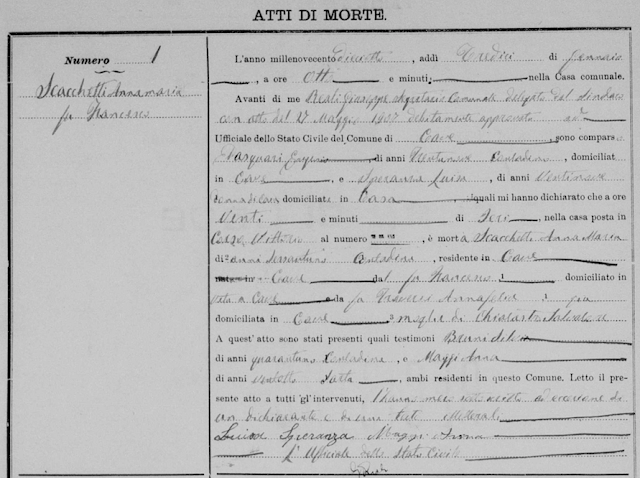 ATTI DI MORTE.
Numero 1
Scacchetti Anna Maria
fu Francesco
L'anno millenovecento diciotto, addì tredici di Gennaio
, a ore Otto e minuti nella Casa comunale.
Avanti di me Reali Giuseppe Segretario Comunale delegato dal Sindaco
con atto del 27 Maggio 1907 debitamente approvato
Ufficiale dello Stato Civile del Comune di Cave, sono compars
Pasquazi Eugenio di anni Contadino, domiciliat
in Cave, e Speranza Luisa, di anni Ventinove
domiciliata in Cave, quali mi hanno dichiarato che a ore
Venti e minuti di Ieri, nella casa posta in
Vittorio al numero, è morta Scacchetti Anna Maria
di anni Sessantuno Contadina, residente in Cave
in Cave dal fu Francesco, domiciliato in
vita a Cave e da fu Anna già
domiciliata in Cave moglie di Salvatore
A quest'atto sono stati presenti quali testimoni Bruni
di anni quarantuno Contadina, e Maggi Anna
di anni Sarta, ambi residenti in questo Comune. Letto il pre-
sente atto a tutti gl'intervenuti, l'hanno meco sottoscritto ad eccezione di
un dichiarante e di un teste illetterati
Luisa Speranza Maggi Anna
L'Ufficiale dello Stato Civile